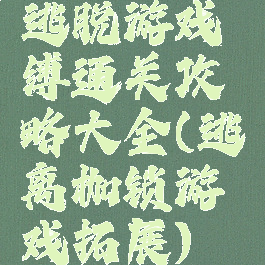 逃脱游戏
缚通关攻
略大全(逃
离枷锁游
戏拓展)